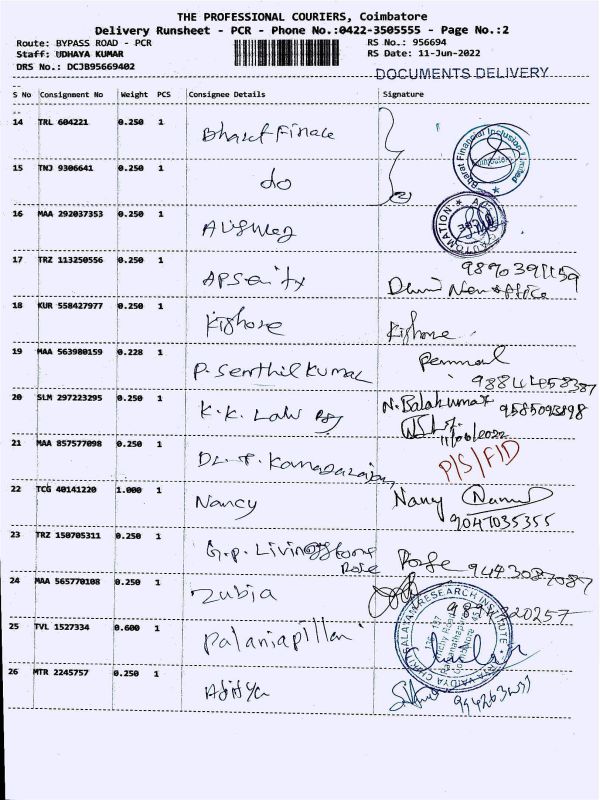 THE PROFESSIONAL COURIERS, Coimbatore
Delivery Runsheet - PCR - Phone No.:0422-3505555 - Page No.:2
Route: BYPASS ROAD - PCR RS No.: 956694
Staff: UDHAYA KUMAR RS Date: 11-Jun-2022
DRS No.: DCJB95669402 DOCUMENTS DELIVERY
S No Consignment No Weight PCS Consignee Details Signature
14 TRL 604221 0.250 1 Bharat Finance
Bharat Financial Inclusion Limited
15 TNJ 9306641 0.250 1 do
16 MAA 292037353 0.250 1
AUTOMATION
17 TRZ 113250556 0.250 1
Office
18 KUR 558427977 0.250 1 Kishore Kishore
19 MAA 563980159 0.228 1 P. Senthil Kumar
20 SLM 297223295 0.250 1 K.K. Law N. Balakumar 9585093898
11/06/2022
21 MAA 857577098 0.250 1
P/S/F/D
22 TCG 40141220 1.000 1 Nancy Nancy
9047035355
23 TRZ 150705311 0.250 1 G.P. Livingstone
Rose Rose 9443087087
24 MAA 565770108 0.250 1 Zubia
9894320257
RESEARCH INSTITUTE
25 TVL 1527334 0.600 1 Palaniapillan
26 MTR 2245757 0.250 1 Adithya